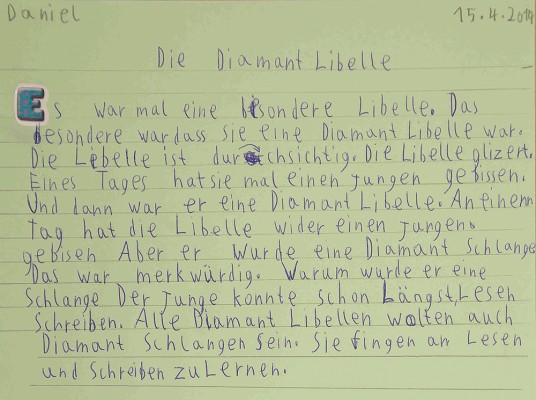 Daniel 15.4.2014
Die Diamant Libelle
Es war mal eine besondere Libelle. Das
besondere war dass sie eine Diamant Libelle war.
Die Lebelle ist durchsichtig. Die Libelle glizert.
Eines Tages hat sie mal einen jungen gebissen.
Und dann war er eine Diamant Libelle. An einem
tag hat die Libelle wider einen jungen
gebisen Aber er wurde eine Diamant Schlange
Das war merkwürdig. Warum wurde er eine
Schlange Der junge konnte schon Längst Lesen
Schreiben. Alle Diamant Libellen wolten auch
Diamant Schlangen sein. Sie fingen an Lesen
und Schreiben zu Lernen.